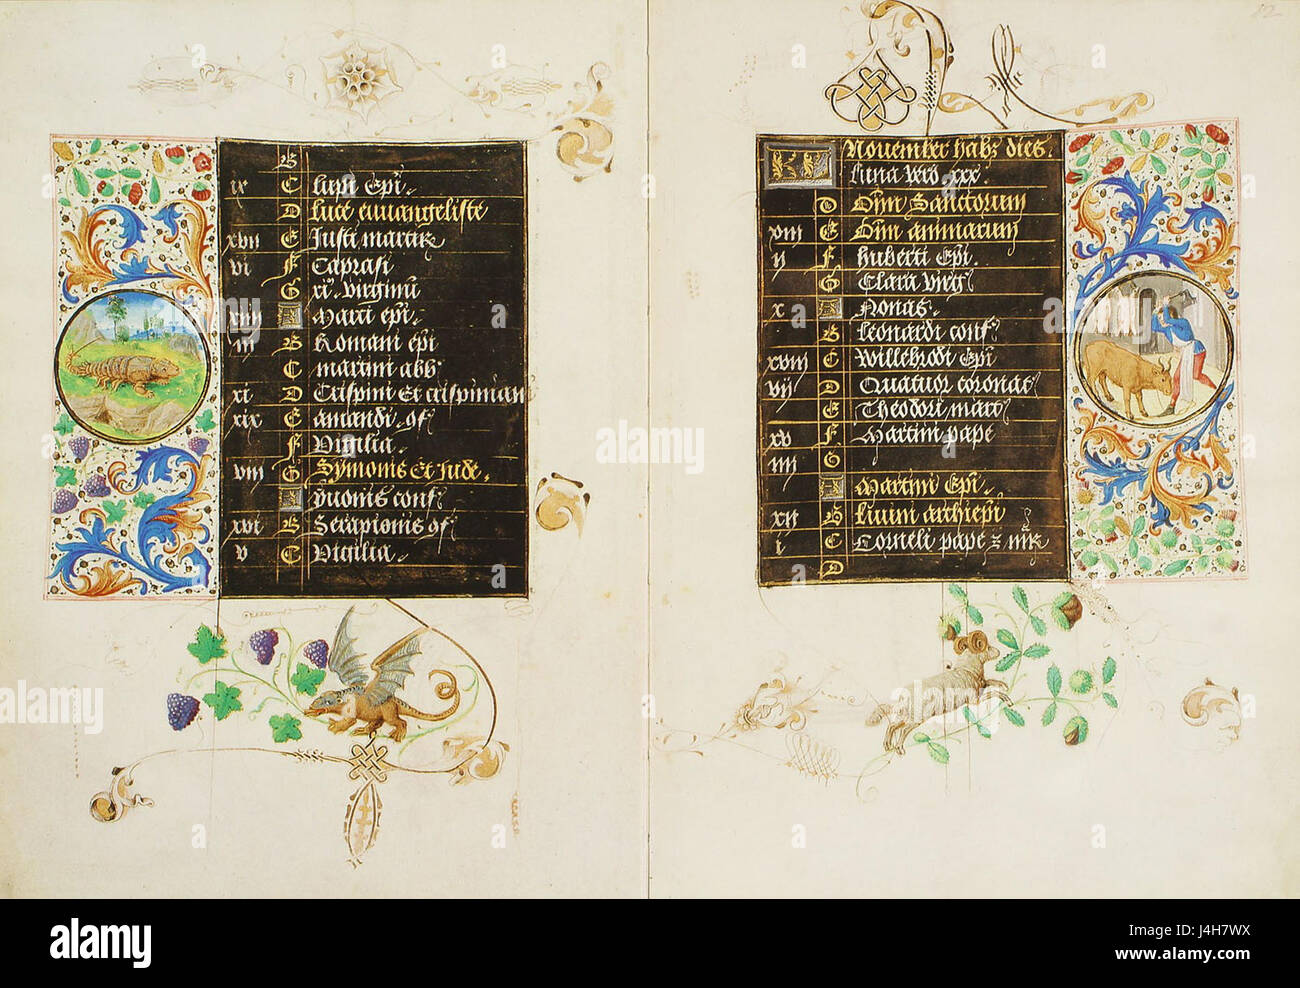 B
ix C Lupi Epi.
D Luce euuangeliste
xvii E Justi martiris
vi F Caprasi
G xi. virginu
xiiii A Marci epi.
iii B Romani epi
C martini abb
xi D Crispini Et crispiniani
xix E amandi. of
F Vigilia.
viii G Symonis Et Jude.
A conf
xvi B Serapionis of
v C Vigilia.
12
KL November habz dies.
Luna vero xxx.
D Oīm Sanctorum
xiii E Oīm animarum
ii F huberti Epi.
G Clara virg
x A Nonas.
B Leonardi conf
xviii C Willehodi Epi
vii D Quatuor coronas
E Theodori mart
xv F Martini pape
iiii G
A Martini Epi.
xii B Liuini archiepi
i C Corneli pape z mr
D
a alamy stock photo
alamy
a
J4H7WX
www.alamy.com